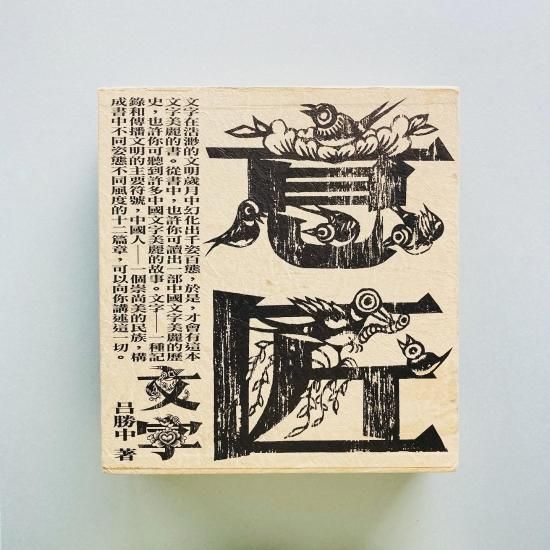 意匠
文字
呂勝中 著
文字在浩渺的文明歲月中幻化出千姿百態，於是，才會有這本
文字美麗的書。從書中，也許你可讀出一部中國文字美麗的歷
史，也許你可聽到許多中國文字美麗的故事。文字——一種記
錄和傳播文明的主要符號，中國人——一個崇尚美的民族，構
成書中不同姿態不同風度的十二篇章，可以向你講述這一切。